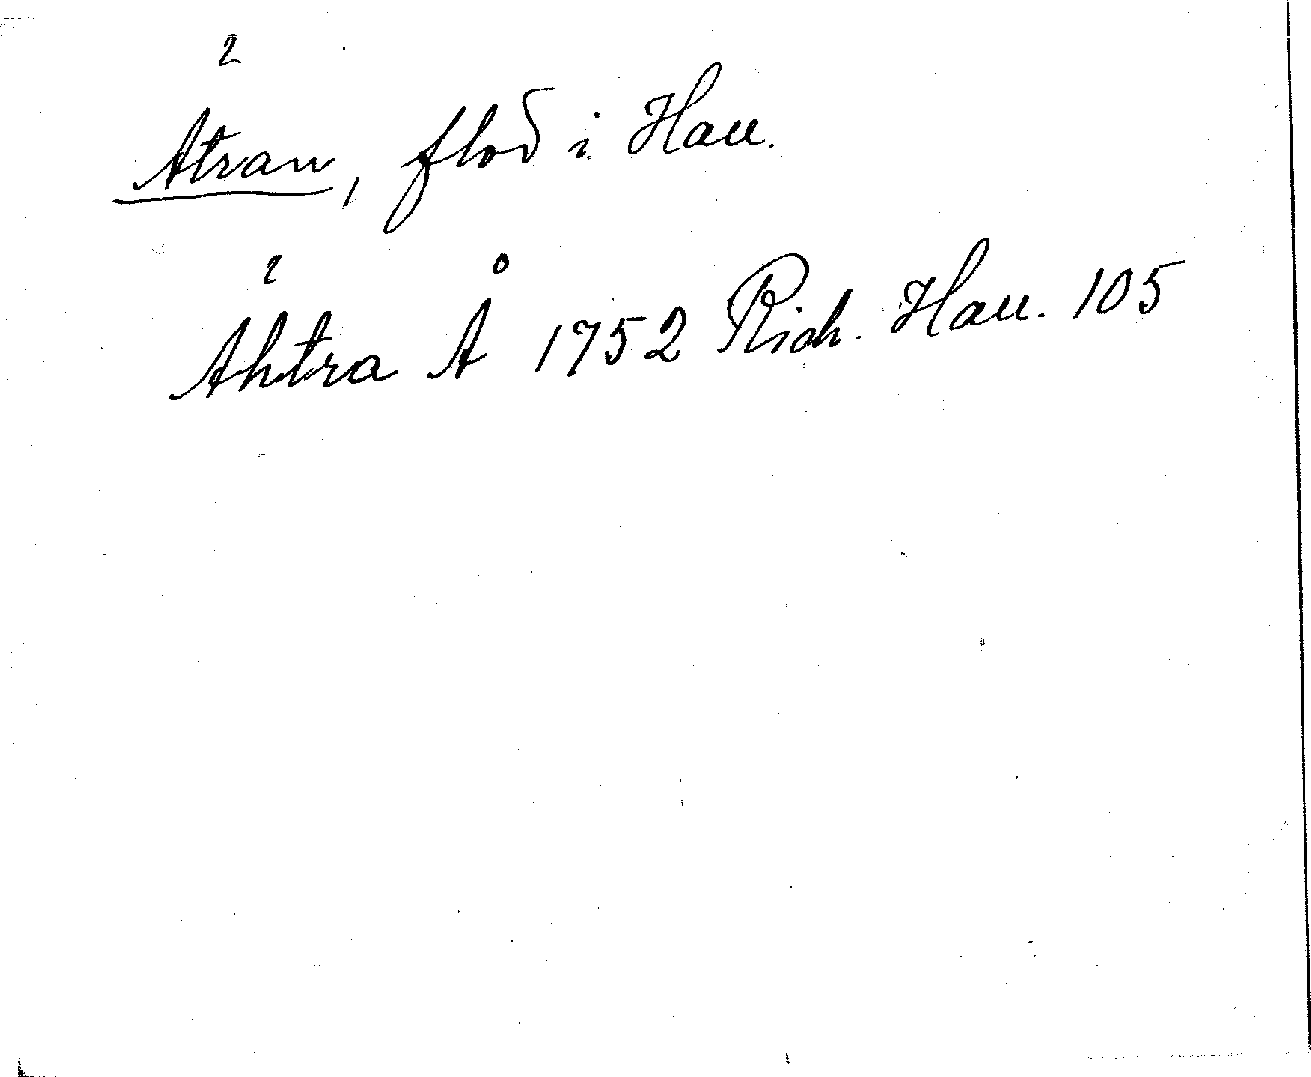 Ätran, flod i Hall.
Ähtra Å 1752 Rich. Hall. 105